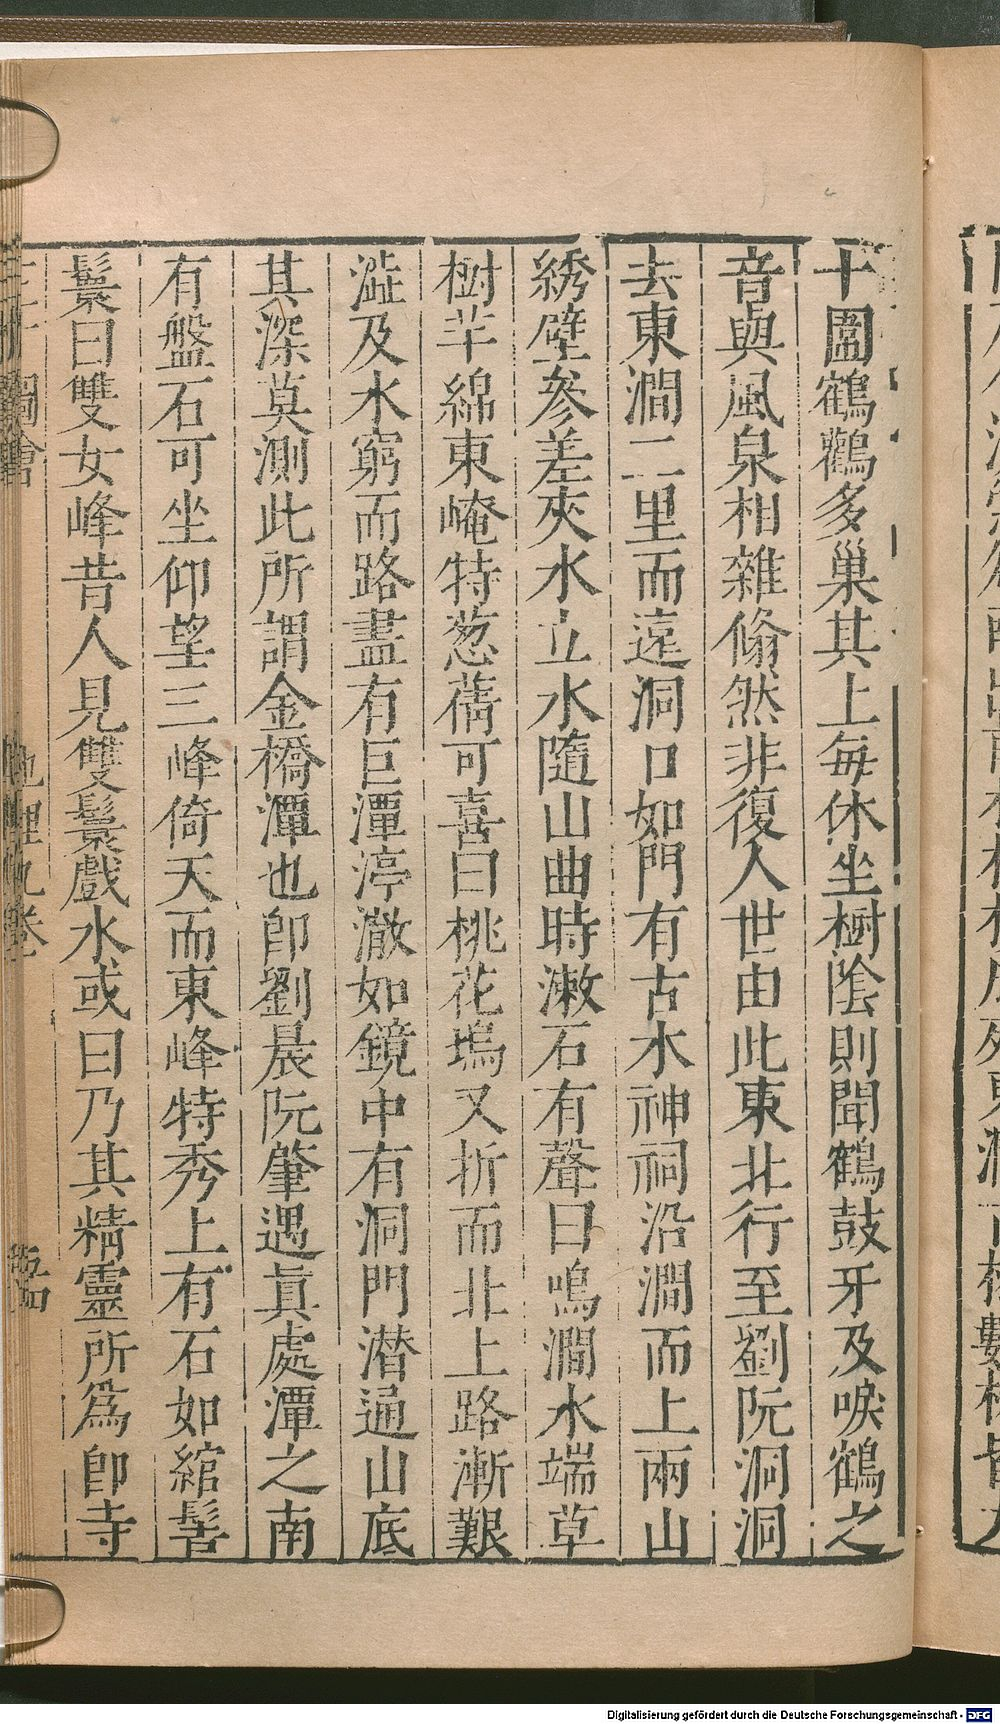 十圍鶴鸛多巢其上每休坐樹陰則聞鶴鼓牙及唳鶴之
音與風泉相雜翛然非復人世由此東北行至劉阮洞洞
去東澗二里而遠洞口如門有古水神祠沿澗而上兩山
綉壁參差夾水立水隨山曲時漱石有聲曰鳴澗水端草
樹芊綿東崦特葱蒨可喜曰桃花塢又折而北上路漸艱
澁及水窮而路盡有巨潭渟澈如鏡中有洞門潜通山底
其深莫測此所謂金橋潭也卽劉晨阮肇遇眞處潭之南
有盤石可坐仰望三峰倚天而東峰特秀上有石如綰髻
鬟曰雙女峰昔人見雙鬟戲水或曰乃其精靈所爲卽寺
圖會 地理九卷
Digitalisierung gefördert durch die Deutsche Forschungsgemeinschaft - DFG